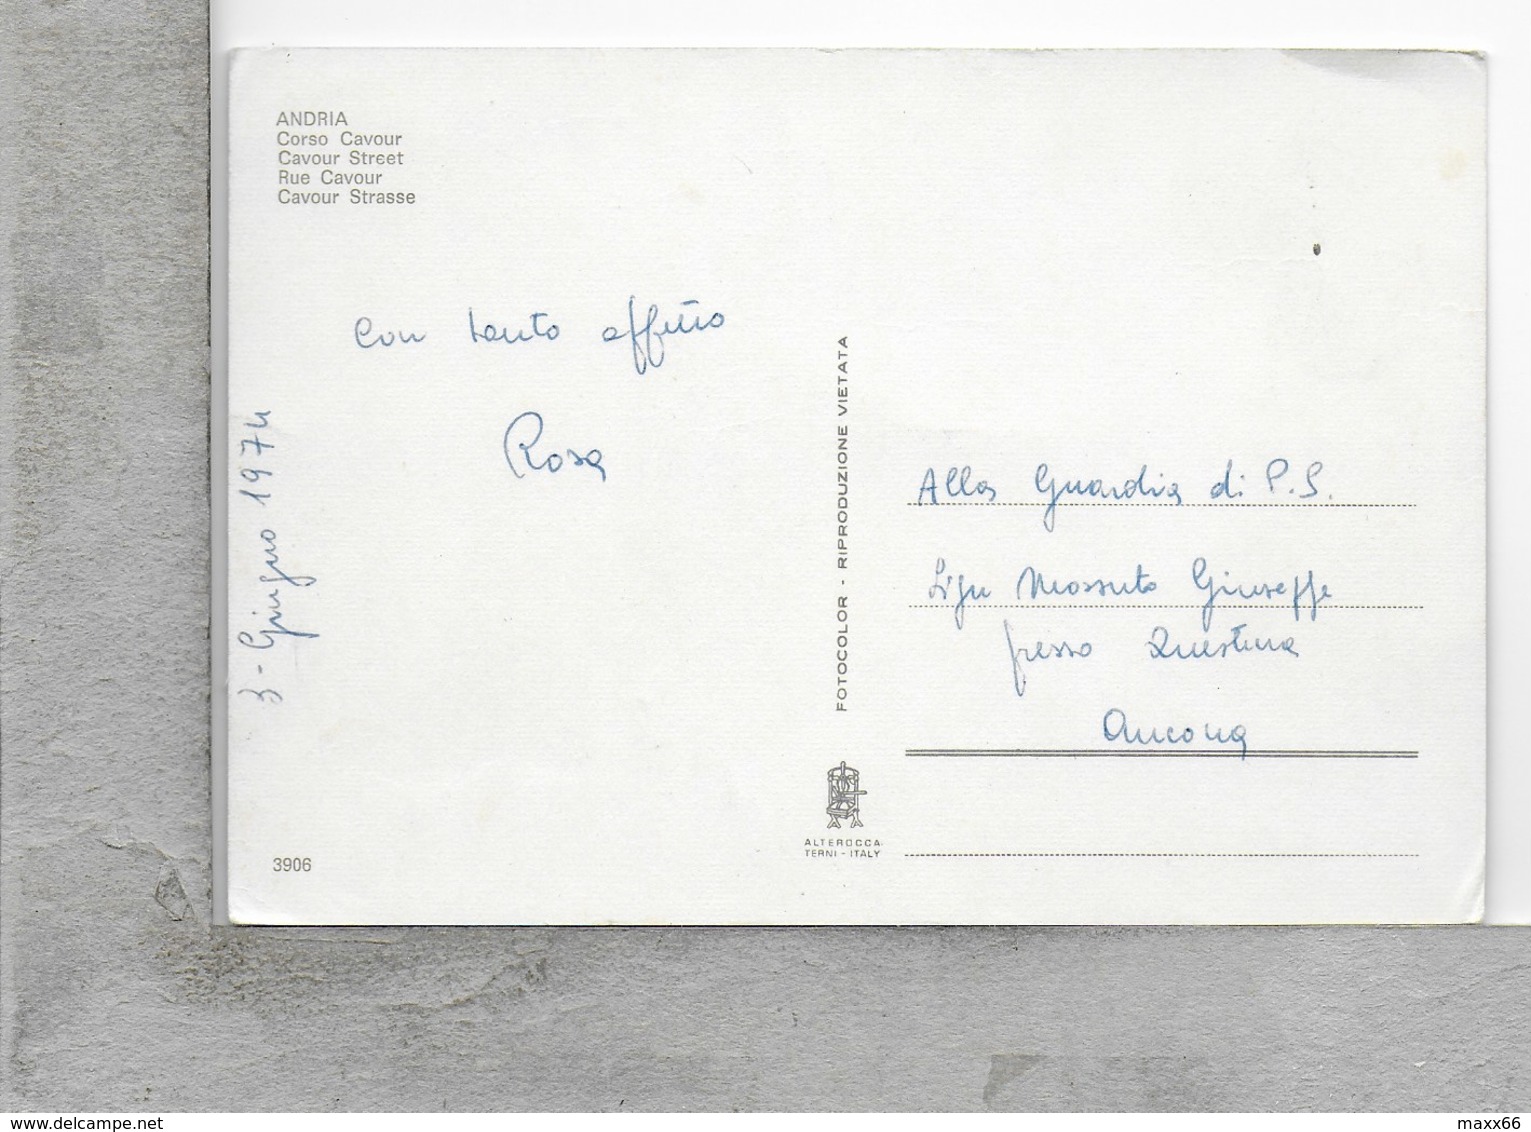 ANDRIA
Corso Cavour
Cavour Street
Rue Cavour
Cavour Strasse
Con tanto affetto
Rosa
3 - Giugno 1974
FOTOCOLOR - RIPRODUZIONE VIETATA
Alla Guardia di P.S.
Sign Mossuto Giuseppe
presso Questura
Ancona
ALTEROCCA
TERNI - ITALY
3906
www.delcampe.net
maxx66